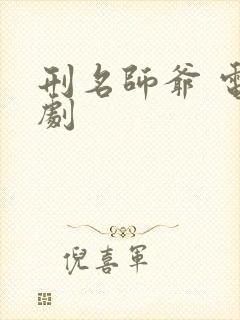 刑名師爺 電
劇
倪喜軍